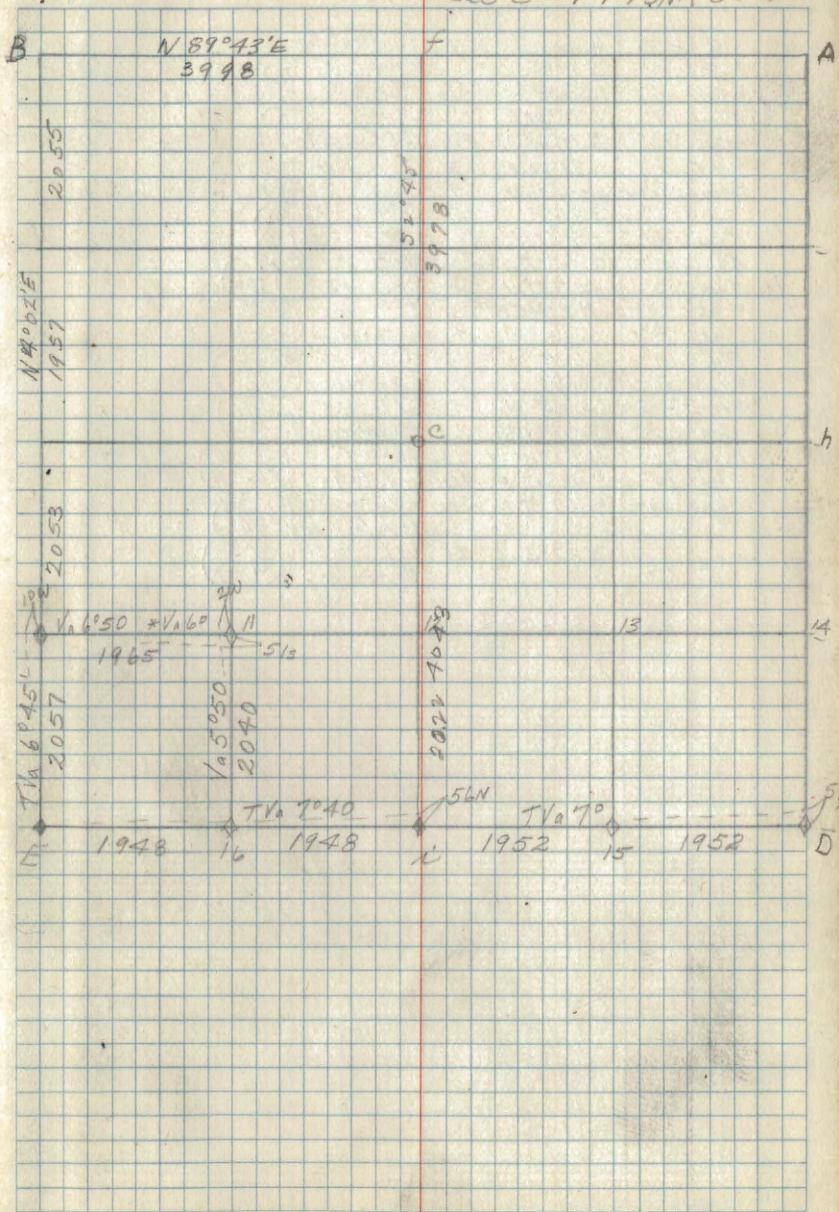 B N 89°43'E f A
3998
2055
52°45
3978
N 4°02'E
1957
C h
2053
Va 6°50 *Va 6° 11 13 14
1965 51s
TVa 6°45'
2057
Va 5°50
2040
2022 4043
TVa 7°40 56N TVa 7° 5
E 1948 16 1948 i 1952 15 1952 D